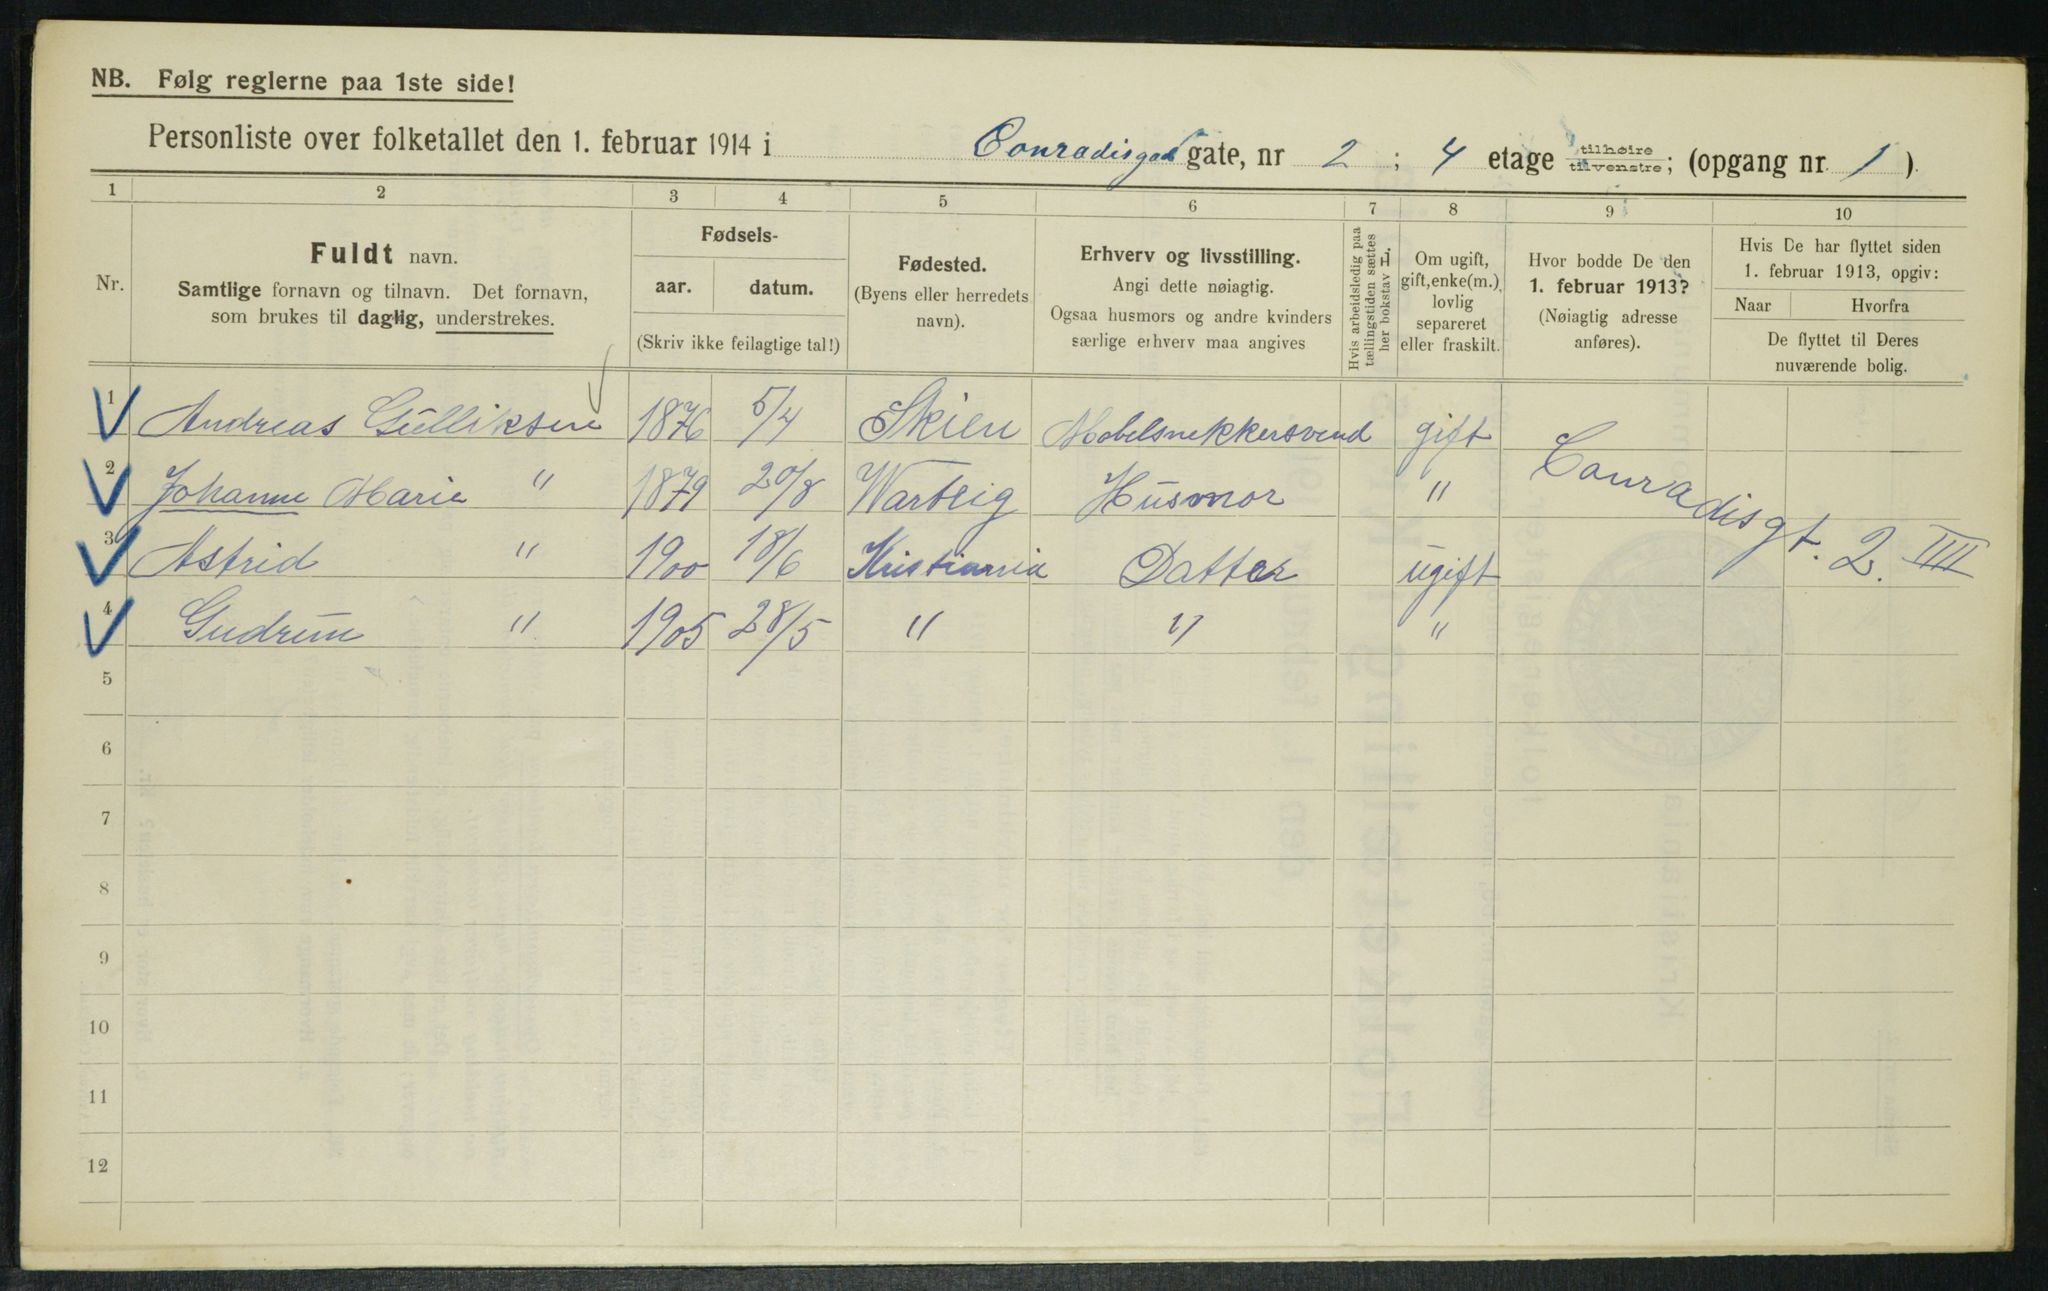 NB. Følg reglerne paa 1ste side!
Personliste over folketallet den 1. februar 1914 i Conradisgad gate, nr 2 ; 4 etage tilhøire tilvenstre; (opgang nr. 1 ).
1 2 3 4 5 6 7 8 9 10
Nr.
Fuldt navn.
Samtlige fornavn og tilnavn. Det fornavn,
som brukes til daglig, understrekes.
Fødsels-
aar. datum.
(Skriv ikke feilagtige tal!)
Fødested.
(Byens eller herredets
navn).
Erhverv og livsstilling.
Angi dette nøiagtig.
Ogsaa husmors og andre kvinders
særlige erhverv maa angives
Hvis arbeidsledig paa
tællingstiden sættes
her bokstav L.
Om ugift,
gift, enke(m.),
lovlig
separeret
eller fraskilt.
Hvor bodde De den
1. februar 1913?
(Nøiagtig adresse
anføres).
Hvis De har flyttet siden
1. februar 1913, opgiv:
Naar Hvorfra
De flyttet til Deres
nuværende bolig.
1 Andreas Gulliksen 1876 5/4 Skien Møbelsnekkersvend gift Conradisgt. 2. IIII
2 Johanne Marie " 1879 20/8 Warteig Husmor "
3 Astrid " 1900 18/6 Kristiania Datter ugift
4 Gudrun " 1905 28/5 " " "
5
6
7
8
9
10
11
12